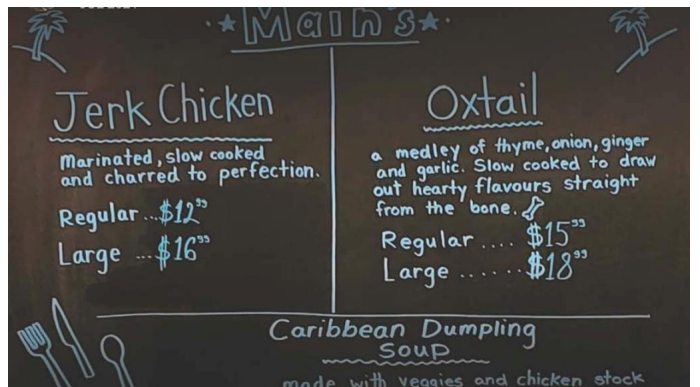 ★Main's★
Jerk Chicken
Marinated, slow cooked
and charred to perfection.
Regular...$12⁹⁹
Large ...$16⁹⁹
Oxtail
a medley of thyme, onion, ginger
and garlic. Slow cooked to draw
out hearty flavours straight
from the bone.
Regular .... $15⁹⁹
Large ...... $18⁹⁹
Caribbean Dumpling
Soup
made with veggies and chicken stock